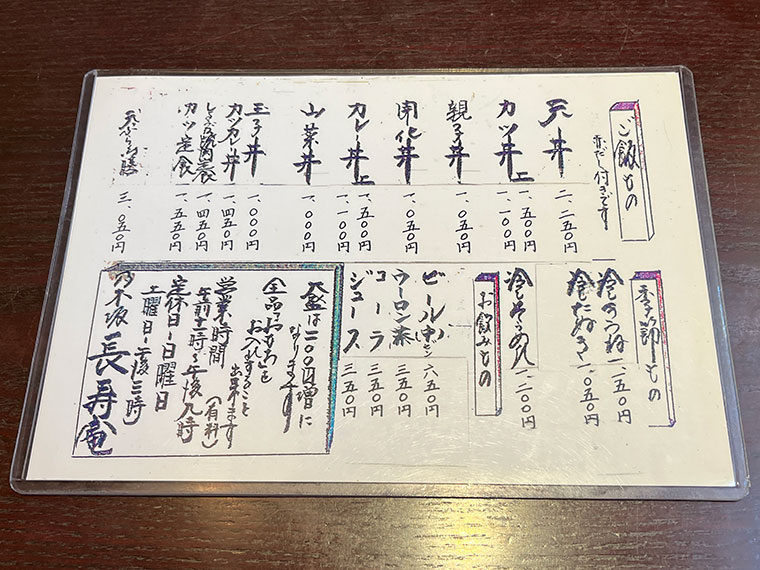 ご飯もの
赤だし付きです
天丼 二、二五〇円
カツ丼 上 一、五〇〇円
一、一〇〇円
親子丼 一、〇五〇円
開化丼 一、〇五〇円
カレー丼 上 一、五〇〇円
一、一〇〇円
山菜丼 一、〇〇〇円
玉子丼 一、〇〇〇円
カツカレー丼 一、四五〇円
しょうが焼定食 一、四五〇円
カツ定食 一、五五〇円
三、〇五〇円
季節もの
冷しきつね 一、一五〇円
冷したぬき 一、〇五〇円
冷しそうめん 一、二〇〇円
お飲みもの
ビール(中ビン) 六五〇円
ウーロン茶 三五〇円
コーラ 三五〇円
ジュース 三五〇円
大盛は二〇〇円増に
なります
全品「おもち」を
お入れすること
出来ます
(有料)
営業時間
午前十一時〜午後九時
定休日−日曜日
土曜日−午後三時
乃木坂 長寿庵